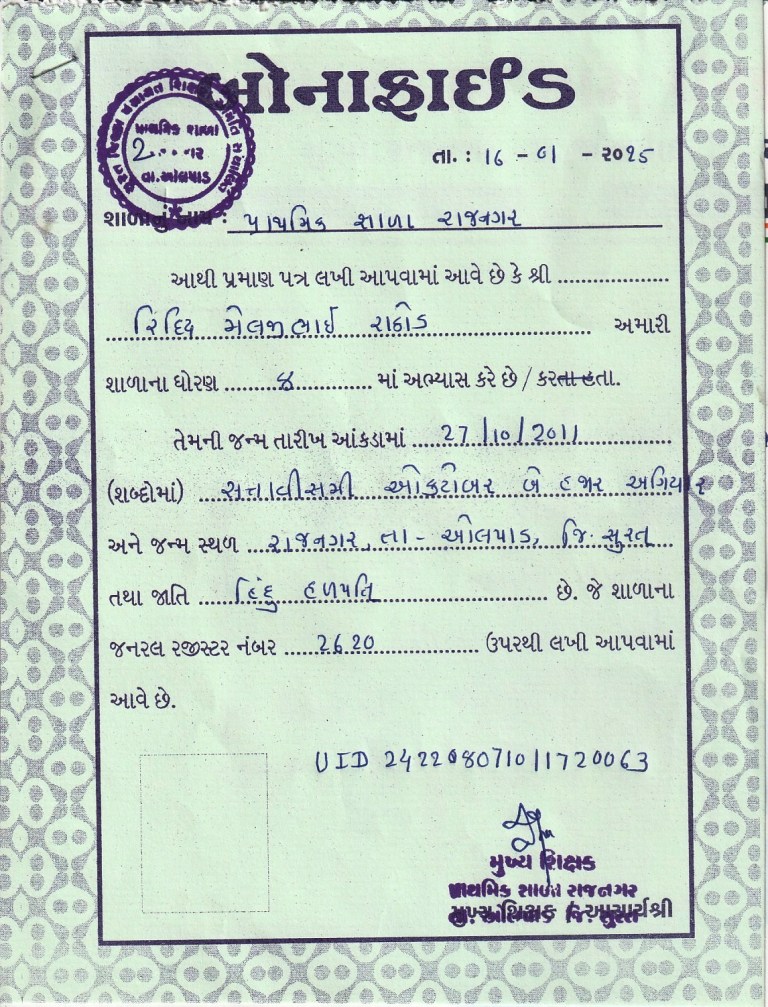 બોનાફાઈડ
પ્રાથમિક શાળા
વા.ઓલપાડ
તા. : 16 - 01 - ૨૦૧૫
શાળાનું નામ : પ્રાથમિક શાળા રાજનગર
આથી પ્રમાણ પત્ર લખી આપવામાં આવે છે કે શ્રી
મેલજીભાઈ રાઠોડ અમારી
શાળાના ધોરણ ૪ માં અભ્યાસ કરે છે / કરતા હતા.
તેમની જન્મ તારીખ આંકડામાં 27/10/2011
(શબ્દોમાં) સત્તાવીસમી ઓક્ટોબર બે હજાર અગિયાર
અને જન્મ સ્થળ રાજનગર, તા - ઓલપાડ, જિ. સુરત
તથા જાતિ હિંદુ હળપતિ છે. જે શાળાના
જનરલ રજીસ્ટર નંબર 2620 ઉપરથી લખી આપવામાં
આવે છે.
UID 242208071011720063
મુખ્ય શિક્ષક
પ્રાથમિક શાળા રાજનગર
મુખ્ય શિક્ષક / આચાર્યશ્રી
તા. ઓલપાડ જિ. સુરત